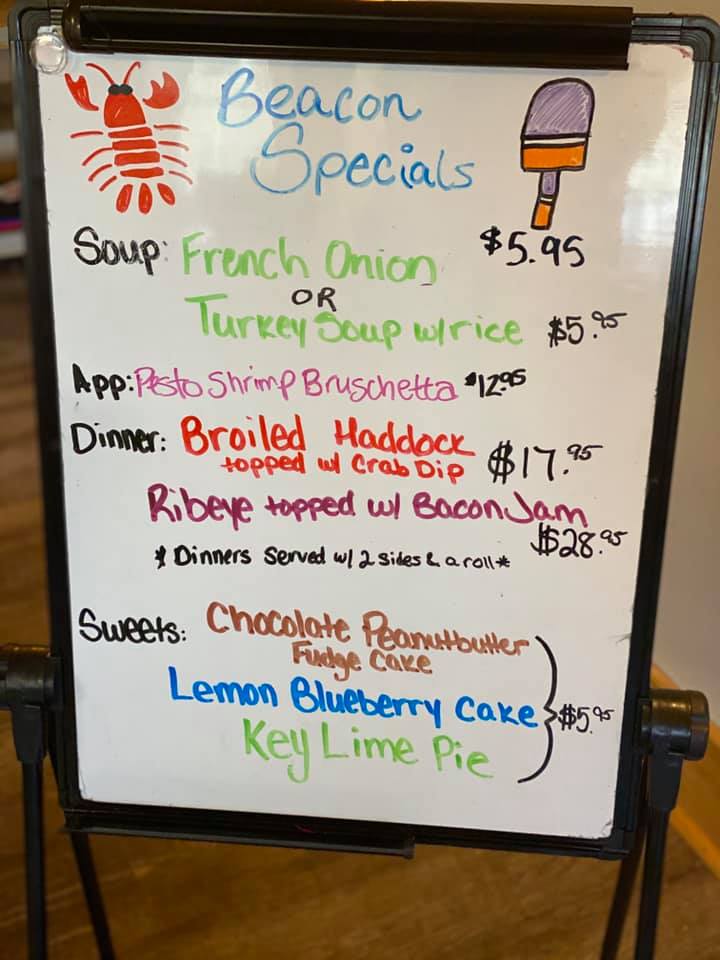 Beacon
Specials
Soup: French Onion $5.95
OR
Turkey Soup w/rice $5.95
App: Pesto Shrimp Bruschetta $12.95
Dinner: Broiled Haddock
topped w/ Crab Dip $17.95
Ribeye topped w/ Bacon Jam
$28.95
* Dinners Served w/ 2 sides & a roll *
Sweets: Chocolate Peanutbutter
Fudge Cake
Lemon Blueberry Cake $5.95
Key Lime Pie